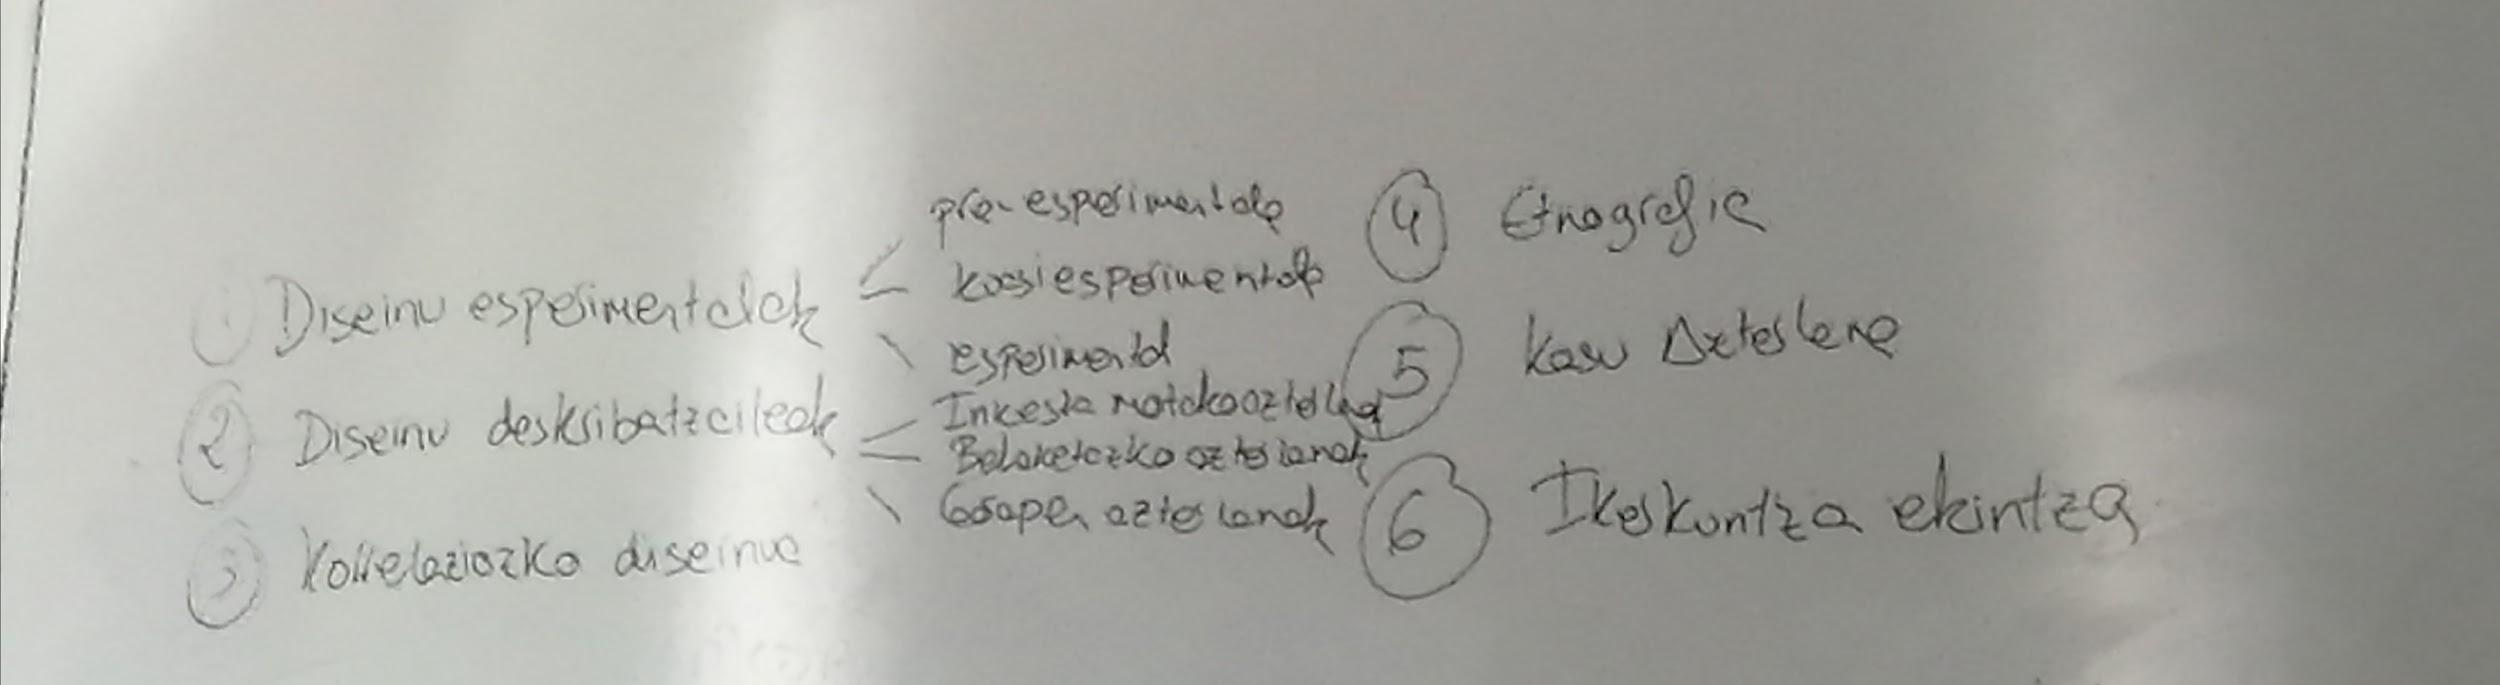 1 Diseinu esperimentalak
pre-esperimentala
kuasiesperimentala
esperimental
2 Diseinu deskribatzaileak
Inkesta motako azterlanak
Behaketazko azterlanak
Garapen azterlanak
3 Korrelaziozko diseinua
4 Etnografia
5 Kasu Azterlana
6 Ikerkuntza ekintza